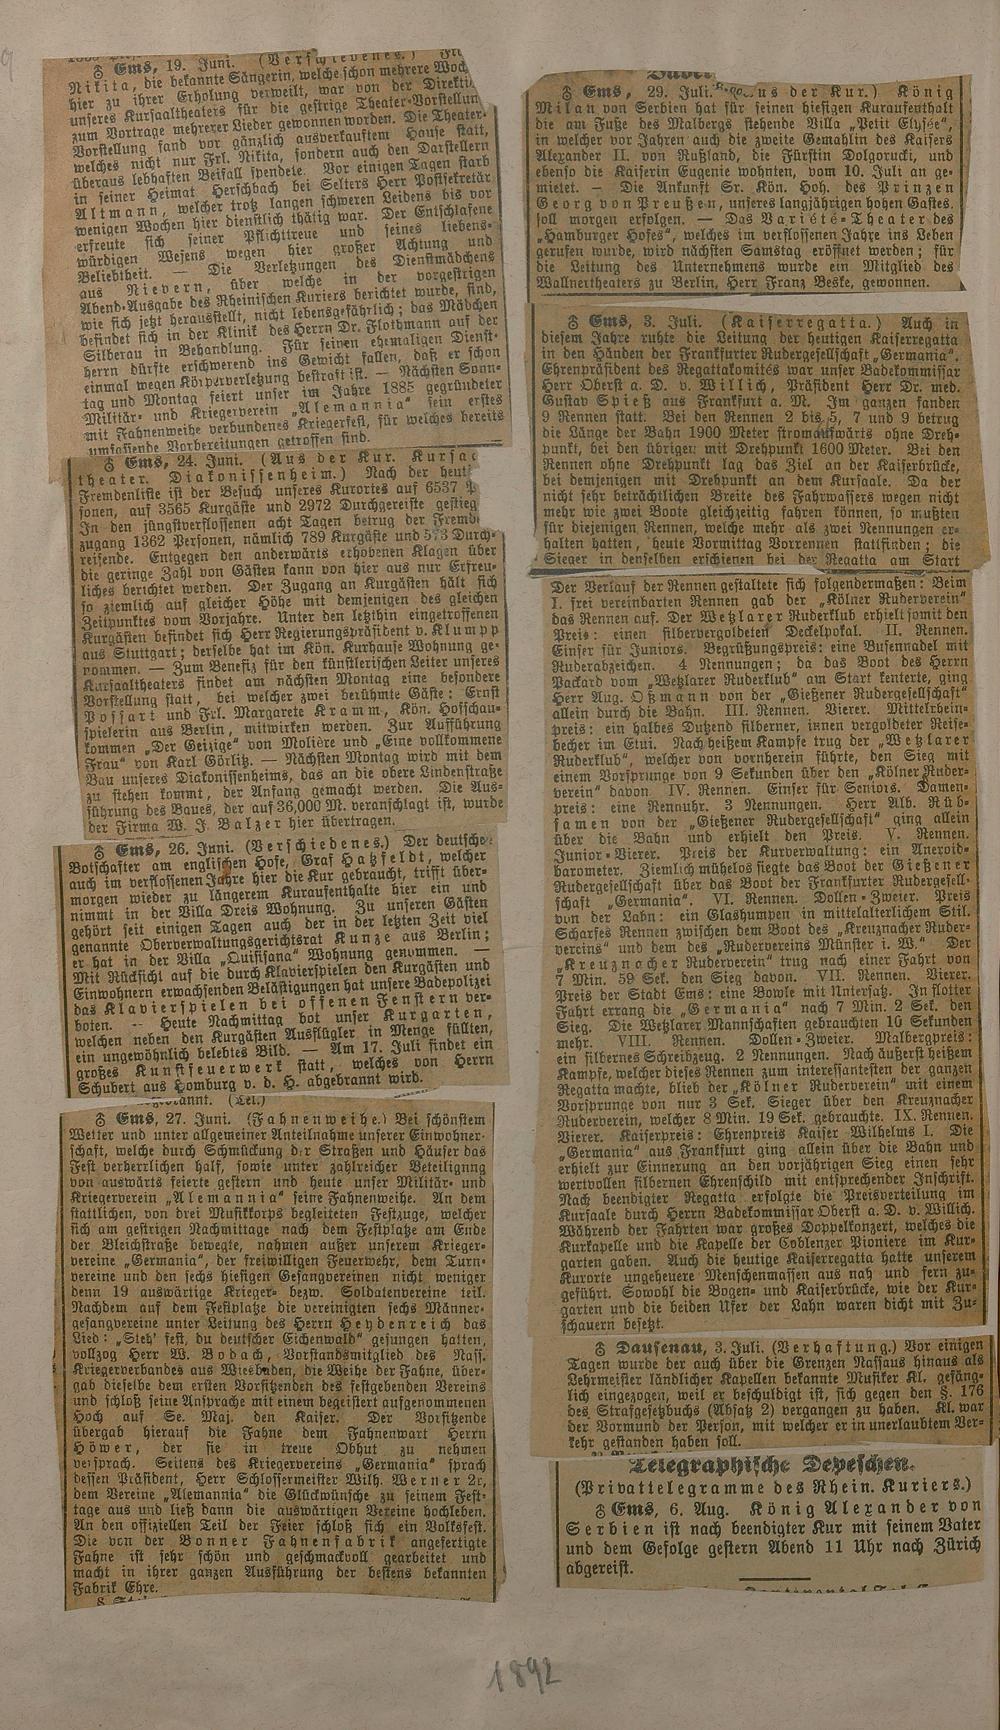 ☿ Ems, 19. Juni. (Verschiedenes.)
Nikita, die bekannte Sängerin, welche schon mehrere
hier zu ihrer Erholung verweilt, war von der
unseres Kursaaltheaters für die gestrige Theater-Vorstellung
zum Vortrage mehrerer Lieder gewonnen worden. Die Theater-
Vorstellung fand vor gänzlich ausverkauftem Hause statt,
welches nicht nur Frl. Nikita, sondern auch den Darstellern
überaus lebhaften Beifall spendete. Vor einigen Tagen starb
in seiner Heimat Herschbach bei Selters Herr Postsekretär
Altmann, welcher trotz langen schweren Leidens bis vor
wenigen Wochen hier dienstlich thätig war. Der Entschlafene
erfreute sich seiner Pflichttreue und seines liebens-
würdigen Wesens wegen hier großer Achtung und
Beliebtheit. — Die Verletzungen des Dienstmädchens
aus Nievern, über welche in der vorgestrigen
Abend-Ausgabe des Rheinischen Kuriers berichtet wurde, sind,
wie sich jetzt herausstellt, nicht lebensgefährlich; das Mädchen
befindet sich in der Klinik des Herrn Dr. Flothmann auf der
Silberau in Behandlung. Für seinen ehemaligen Dienst-
herrn dürfte erschwerend ins Gewicht fallen, daß er schon
einmal wegen Körperverletzung bestraft ist. — Nächsten Sonn-
tag und Montag feiert unser im Jahre 1885 gegründeter
Militär- und Kriegerverein „Alemannia“ sein erstes
mit Fahnenweihe verbundenes Kriegerfest, für welches bereits
umfassende Vorbereitungen getroffen sind.
☿ Ems, 24. Juni. (Aus der Kur.
theater. Diakonissenheim.) Nach der
Fremdenliste ist der Besuch unseres Kurortes auf 6537
sonen, auf 3565 Kurgäste und 2972 Durchgereiste
In den jüngstverflossenen acht Tagen betrug der
zugang 1362 Personen, nämlich 789 Kurgäste und 573 Durch-
reisende. Entgegen den anderwärts erhobenen Klagen über
die geringe Zahl von Gästen kann von hier aus nur Erfreu-
liches berichtet werden. Der Zugang an Kurgästen hält sich
so ziemlich auf gleicher Höhe mit demjenigen des gleichen
Zeitpunktes vom Vorjahre. Unter den letzthin eingetroffenen
Kurgästen befindet sich Herr Regierungspräsident v. Klumpp
aus Stuttgart; derselbe hat im Kön. Kurhause Wohnung ge-
nommen. — Zum Benefiz für den künstlerischen Leiter unseres
Kursaaltheaters findet am nächsten Montag eine besondere
Vorstellung statt, bei welcher zwei berühmte Gäste: Ernst
Possart und Frl. Margarete Kramm, Kön. Hofschau-
spielerin aus Berlin, mitwirken werden. Zur Aufführung
kommen „Der Geizige“ von Molière und „Eine vollkommene
Frau“ von Karl Görlitz. — Nächsten Montag wird mit dem
Bau unseres Diakonissenheims, das an die obere Lindenstraße
zu stehen kommt, der Anfang gemacht werden. Die Aus-
führung des Baues, der auf 36,000 M. veranschlagt ist, wurde
der Firma W. J. Balzer hier übertragen.
☿ Ems, 26. Juni. (Verschiedenes.) Der deutsche
Botschafter am englischen Hofe, Graf Hatzfeldt, welcher
auch im verflossenen Jahre hier die Kur gebraucht, trifft über-
morgen wieder zu längerem Kuraufenthalte hier ein und
nimmt in der Villa Dreis Wohnung. Zu unseren Gästen
gehört seit einigen Tagen auch der in der letzten Zeit viel
genannte Oberverwaltungsgerichtsrat Kunze aus Berlin;
er hat in der Villa „Quisisana“ Wohnung genommen. —
Mit Rücksicht auf die durch Klavierspielen den Kurgästen und
Einwohnern erwachsenden Belästigungen hat unsere Badepolizei
das Klavierspielen bei offenen Fenstern ver-
boten. — Heute Nachmittag bot unser Kurgarten,
welchen neben den Kurgästen Ausflügler in Menge füllten,
ein ungewöhnlich belebtes Bild. — Am 17. Juli findet ein
großes Kunstfeuerwerk statt, welches von Herrn
Schubert aus Homburg v. d. H. abgebrannt wird.
☿ Ems, 27. Juni. (Fahnenweihe.) Bei schönstem
Wetter und unter allgemeiner Anteilnahme unserer Einwohner-
schaft, welche durch Schmückung der Straßen und Häuser das
Fest verherrlichen half, sowie unter zahlreicher Beteiligung
von auswärts feierte gestern und heute unser Militär- und
Kriegerverein „Alemannia“ seine Fahnenweihe. An dem
stattlichen, von drei Musikkorps begleiteten Festzuge, welcher
sich am gestrigen Nachmittage nach dem Festplatze am Ende
der Bleichstraße bewegte, nahmen außer unserem Krieger-
vereine „Germania“, der freiwilligen Feuerwehr, dem Turn-
vereine und den sechs hiesigen Gesangvereinen nicht weniger
denn 19 auswärtige Krieger- bezw. Soldatenvereine teil.
Nachdem auf dem Festplatze die vereinigten sechs Männer-
gesangvereine unter Leitung des Herrn Heydenreich das
Lied: „Steh' fest, du deutscher Eichenwald“ gesungen hatten,
vollzog Herr W. Bodach, Vorstandsmitglied des Nass.
Kriegerverbandes aus Wiesbaden, die Weihe der Fahne, über-
gab dieselbe dem ersten Vorsitzenden des festgebenden Vereins
und schloß seine Ansprache mit einem begeistert aufgenommenen
Hoch auf Se. Maj. den Kaiser. Der Vorsitzende
übergab hierauf die Fahne dem Fahnenwart Herrn
Höwer, der sie in treue Obhut zu nehmen
versprach. Seitens des Kriegervereins „Germania“ sprach
dessen Präsident, Herr Schlossermeister Wilh. Werner 2r,
dem Vereine „Alemannia“ die Glückwünsche zu seinem Fest-
tage aus und ließ dann die auswärtigen Vereine hochleben.
An den offiziellen Teil der Feier schloß sich ein Volksfest.
Die von der Bonner Fahnenfabrik angefertigte
Fahne ist sehr schön und geschmackvoll gearbeitet und
macht in ihrer ganzen Ausführung der bestens bekannten
Fabrik Ehre.
☿ Ems, 29. Juli. (Aus der Kur.) König
Milan von Serbien hat für seinen hiesigen Kuraufenthalt
die am Fuße des Malbergs stehende Villa „Petit Elysée“,
in welcher vor Jahren auch die zweite Gemahlin des Kaisers
Alexander II. von Rußland, die Fürstin Dolgorucki, und
ebenso die Kaiserin Eugenie wohnten, vom 10. Juli an ge-
mietet. — Die Ankunft Sr. Kön. Hoh. des Prinzen
Georg von Preußen, unseres langjährigen hohen Gastes,
soll morgen erfolgen. — Das Variété-Theater des
„Hamburger Hofes“, welches im verflossenen Jahre ins Leben
gerufen wurde, wird nächsten Samstag eröffnet werden; für
die Leitung des Unternehmens wurde ein Mitglied des
Wallnertheaters zu Berlin, Herr Franz Beske, gewonnen.
☿ Ems, 3. Juli. (Kaiserregatta.) Auch in
diesem Jahre ruhte die Leitung der heutigen Kaiserregatta
in den Händen der Frankfurter Rudergesellschaft „Germania“.
Ehrenpräsident des Regattakomités war unser Badekommissar
Herr Oberst a. D. v. Willich, Präsident Herr Dr. med.
Gustav Spieß aus Frankfurt a. M. Im ganzen fanden
9 Rennen statt. Bei den Rennen 2 bis 5, 7 und 9 betrug
die Länge der Bahn 1900 Meter stromaufwärts ohne Dreh-
punkt, bei den übrigen mit Drehpunkt 1600 Meter. Bei den
Rennen ohne Drehpunkt lag das Ziel an der Kaiserbrücke,
bei demjenigen mit Drehpunkt an dem Kursaale. Da der
nicht sehr beträchtlichen Breite des Fahrwassers wegen nicht
mehr wie zwei Boote gleichzeitig fahren können, so mußten
für diejenigen Rennen, welche mehr als zwei Nennungen er-
halten hatten, heute Vormittag Vorrennen stattfinden; die
Sieger in denselben erschienen bei der Regatta am Start
Der Verlauf der Rennen gestaltete sich folgendermaßen: Beim
I. frei vereinbarten Rennen gab der „Kölner Ruderverein“
das Rennen auf. Der Wetzlarer Ruderklub erhielt somit den
Preis: einen silbervergoldeten Deckelpokal. II. Rennen.
Einser für Juniors. Begrüßungspreis: eine Busennadel mit
Ruderabzeichen. 4 Nennungen; da das Boot des Herrn
Packard vom „Wetzlarer Ruderklub“ am Start kenterte, ging
Herr Aug. Oßmann von der „Gießener Rudergesellschaft“
allein durch die Bahn. III. Rennen. Vierer. Mittelrhein-
preis: ein halbes Dutzend silberner, innen vergoldeter Reise-
becher im Etui. Nach heißem Kampfe trug der „Wetzlarer
Ruderklub“, welcher von vornherein führte, den Sieg mit
einem Vorsprunge von 9 Sekunden über den „Kölner Ruder-
verein“ davon. IV. Rennen. Einser für Seniors. Damen-
preis: eine Rennuhr. 3 Nennungen. Herr Alb. Rüb-
samen von der „Gießener Rudergesellschaft“ ging allein
über die Bahn und erhielt den Preis. V. Rennen.
Junior-Vierer. Preis der Kurverwaltung: ein Aneroid-
barometer. Ziemlich mühelos siegte das Boot der Gießener
Rudergesellschaft über das Boot der Frankfurter Rudergesell-
schaft „Germania“. VI. Rennen. Dollen-Zweier. Preis
von der Lahn: ein Glashumpen in mittelalterlichem Stil.
Scharfes Rennen zwischen dem Boot des „Kreuznacher Ruder-
vereins“ und dem des „Rudervereins Münster i. W.“ Der
„Kreuznacher Ruderverein“ trug nach einer Fahrt von
7 Min. 59 Sek. den Sieg davon. VII. Rennen. Vierer.
Preis der Stadt Ems: eine Bowle mit Untersatz. In flotter
Fahrt errang die „Germania“ nach 7 Min. 2 Sek. den
Sieg. Die Wetzlarer Mannschaften gebrauchten 10 Sekunden
mehr. VIII. Rennen. Dollen-Zweier. Malbergpreis:
ein silbernes Schreibzeug. 2 Nennungen. Nach äußerst heißem
Kampfe, welcher dieses Rennen zum interessantesten der ganzen
Regatta machte, blieb der „Kölner Ruderverein“ mit einem
Vorsprunge von nur 3 Sek. Sieger über den Kreuznacher
Ruderverein, welcher 8 Min. 19 Sek. gebrauchte. IX. Rennen.
Vierer. Kaiserpreis: Ehrenpreis Kaiser Wilhelms I. Die
„Germania“ aus Frankfurt ging allein über die Bahn und
erhielt zur Einnerung an den vorjährigen Sieg einen sehr
wertvollen silbernen Ehrenschild mit entsprechender Inschrift.
Nach beendigter Regatta erfolgte die Preisverteilung im
Kursaale durch Herrn Badekommissar Oberst a. D. v. Willich.
Während der Fahrten war großes Doppelkonzert, welches die
Kurkapelle und die Kapelle der Coblenzer Pioniere im Kur-
garten gaben. Auch die heutige Kaiserregatta hatte unserem
Kurorte ungeheuere Menschenmassen aus nah und fern zu-
geführt. Sowohl die Bogen- und Kaiserbrücke, wie der Kur-
garten und die beiden Ufer der Lahn waren dicht mit Zu-
schauern besetzt.
☿ Dausenau, 3. Juli. (Verhaftung.) Vor einigen
Tagen wurde der auch über die Grenzen Nassaus hinaus als
Lehrmeister ländlicher Kapellen bekannte Musiker Kl. gefäng-
lich eingezogen, weil er beschuldigt ist, sich gegen den §. 176
des Strafgesetzbuchs (Absatz 2) vergangen zu haben. Kl. war
der Vormund der Person, mit welcher er in unerlaubtem Ver-
kehr gestanden haben soll.
Telegraphische Depeschen.
(Privattelegramme des Rhein. Kuriers.)
☿ Ems, 6. Aug. König Alexander von
Serbien ist nach beendigter Kur mit seinem Vater
und dem Gefolge gestern Abend 11 Uhr nach Zürich
abgereist.
1892